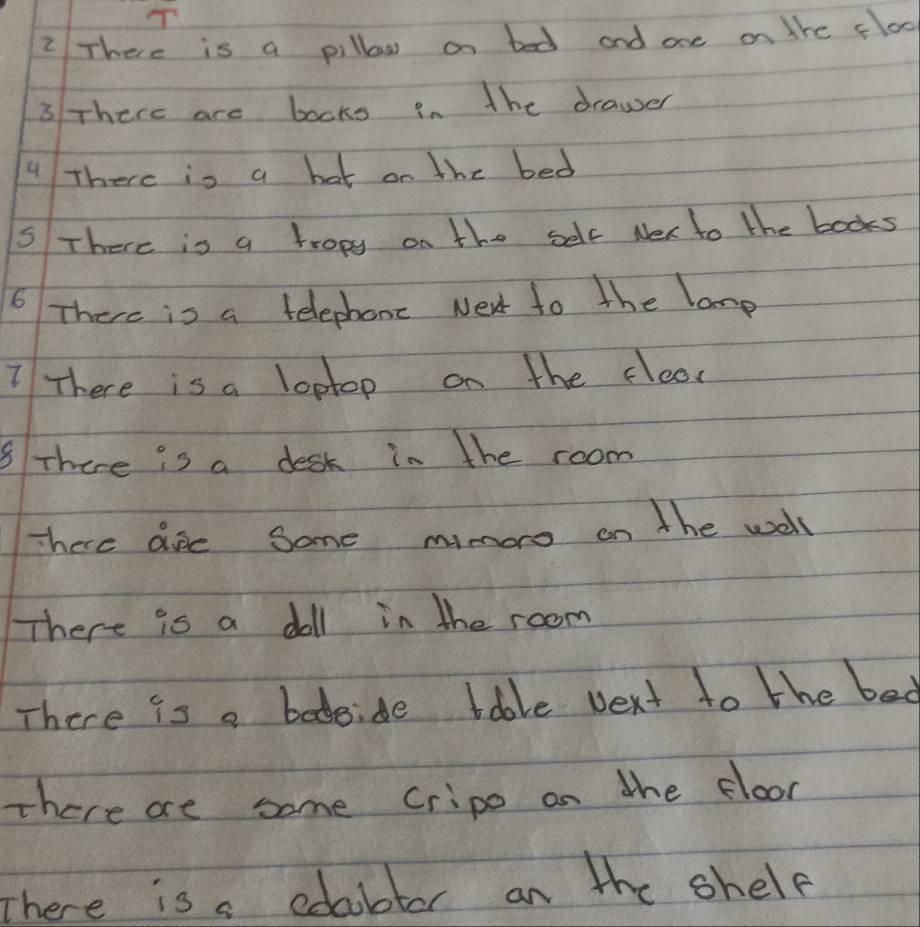 T
2 There is a pillow on bed and one on the floo
3 There are books in the drawer
4 There is a hat on the bed
5 There is a tropy on the self Nex to the books
6 There is a telephone Next to the lamp
7 There is a laptop on the floor
8 There is a desk in the room
There are some mirrors on the wall
There is a doll in the room
There is a bedside table Next to the bed
There are some crips on the floor
There is a on the shelf